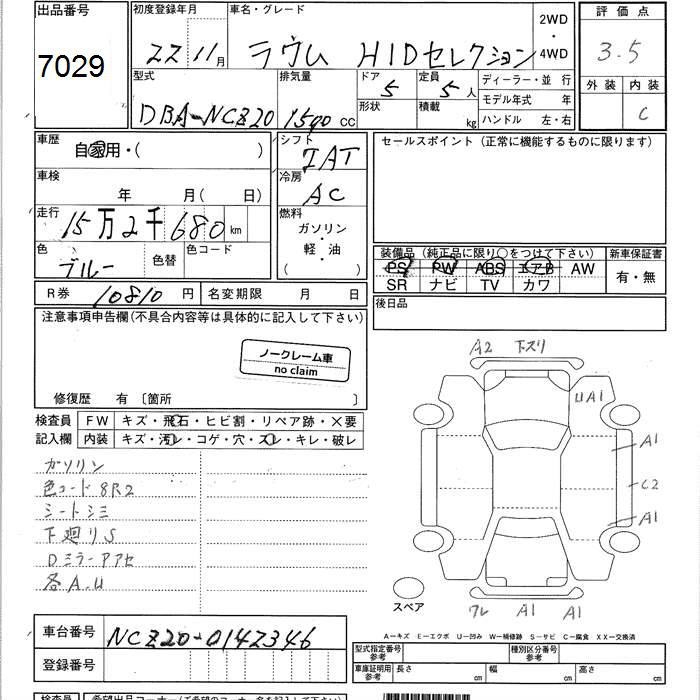 出品番号
7029
初度登録年月
22 11月
車名・グレード
ラウム HIDセレクション
2WD
・
4WD
評価点
3.5
外装 内装
C
型式
DBA-NCZ20
排気量
1500 cc
ドア
5
形状
定員
5人
積載
kg
ディーラー・並行
モデル年式 年
ハンドル 左・右
車歴
自家用・( )
シフト
IAT
車検
年 月( 日)
冷房
AC
走行
15万2千680km
燃料
ガソリン
・
軽・油
( )
色
ブルー
色替
色コード
R券 10810 円
名変期限 月 日
セールスポイント(正常に機能するものに限ります)
装備品(純正品に限り○をつけて下さい)
PS PW ABS エアB AW
SR ナビ TV カワ
新車保証書
有・無
後日品
注意事項申告欄(不具合内容等は具体的に記入して下さい)
ノークレーム車
no claim
修復歴 有 〔箇所 〕
検査員
記入欄
FW キズ・飛石・ヒビ割・リペア跡・×要
内装 キズ・汚レ・コゲ・穴・スレ・キレ・破レ
ガソリン
色コード 8R2
シートシミ
下廻りS
Dミラーアアセ
各A.U
A2 下スリ
UA1
A1
C2
A1
ワレ A1 A1
スペア
A-キズ E-エクボ U-凹み W-補修跡 S-サビ C-腐食 XX-交換済
車台番号 NCZ20-0142346
登録番号
型式指定番号
参考
種別区分番号
参考
車庫証明用
参考
長さ cm
幅 cm
高さ cm
検査員
希望出品コーナー(ご希望のコーナー名を記入して下さい)